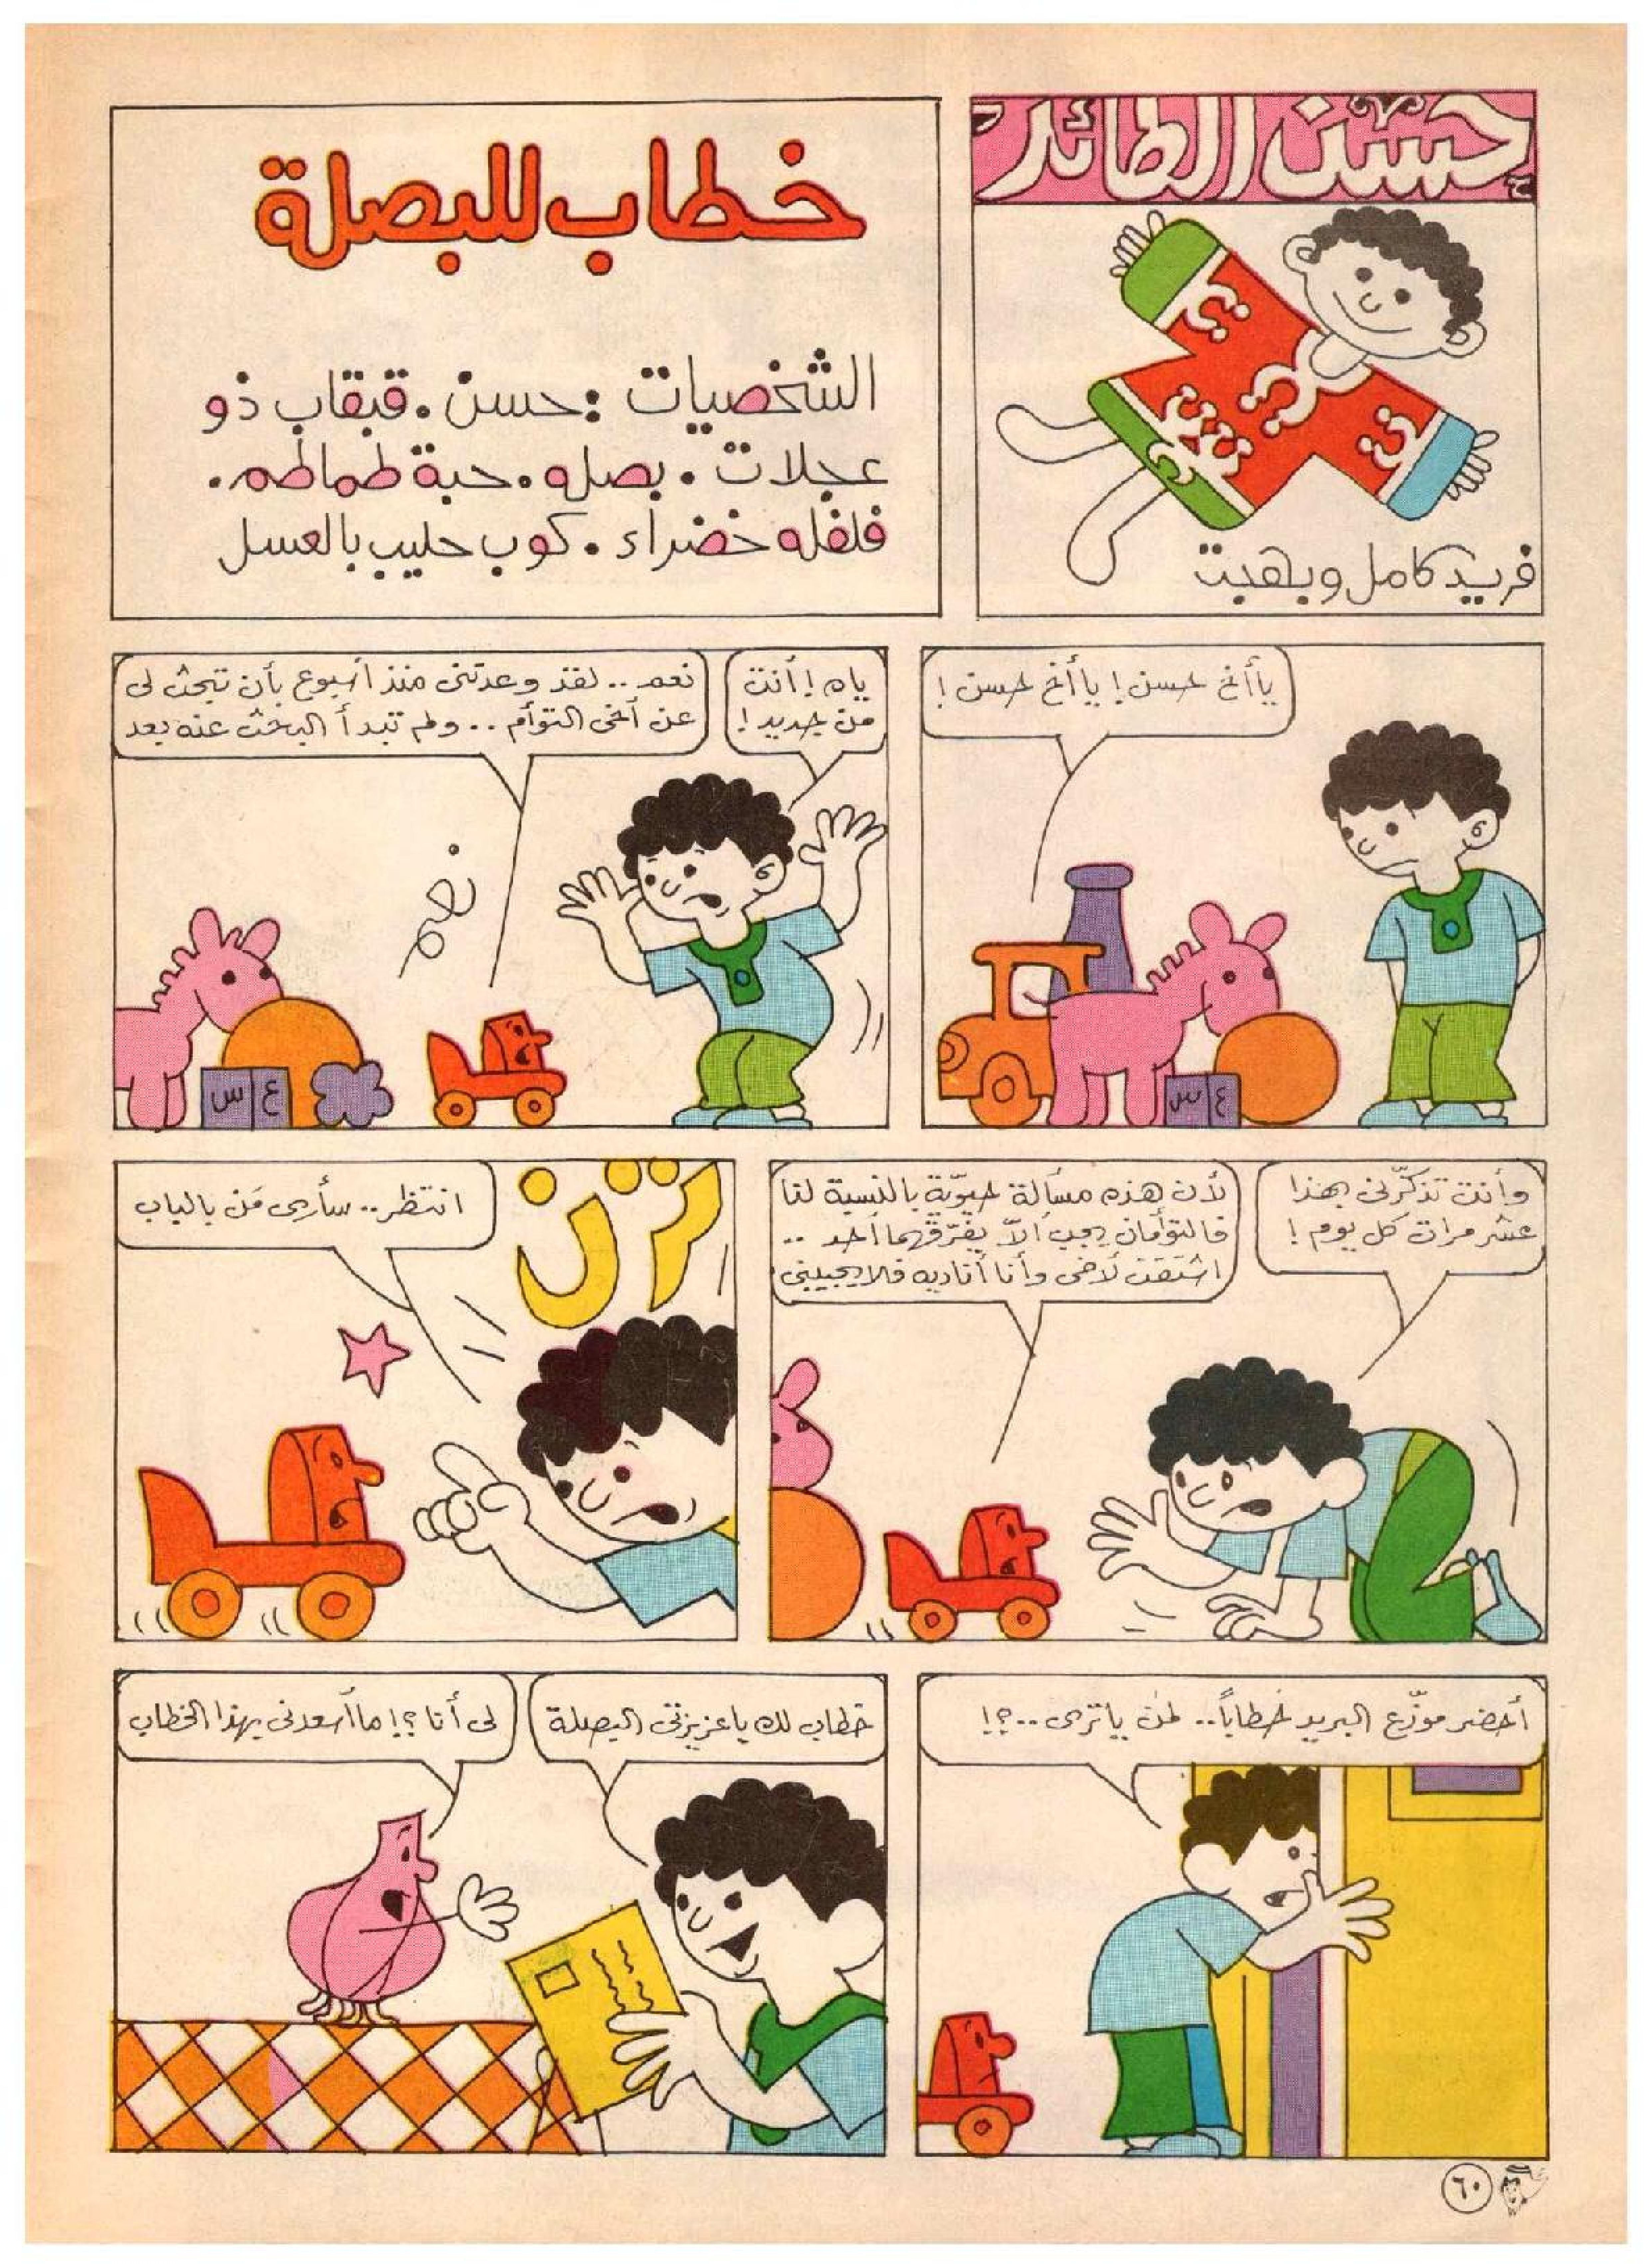 حسن الطائر
فريد كامل وبهجت
خطاب للبصلة
الشخصيات : حسن . قبقاب ذو
عجلات . بصله . حبة طماطم .
فلفله خضراء . كوب حليب بالعسل
يا أخ حسن ! يا أخ حسن !
ياه ! أنت
من جديد !
نعم .. لقد وعدتنى منذ أسبوع بأن تبحث لى
عن أخى التوأم .. ولم تبدأ البحث عنه بعد
نعم
س ع
س ع
وأنت تذكّرنى بهذا
عشر مرات كل يوم !
لأن هذه مسألة حيوّية بالنسبة لنا
فالتوأمان يجب ألاّ يفرّقهما أحد ..
اشتقت لأخى وأنا أناديه فلا يجيبنى
ترن
انتظر .. سأرى مَن بالباب
أحضر موزّع البريد خطاباً .. لمن يا ترى .. ؟!
خطاب لك يا عزيزتى البصلة
لى أنا ؟! ما أسعدنى بهذا الخطاب
٦٠